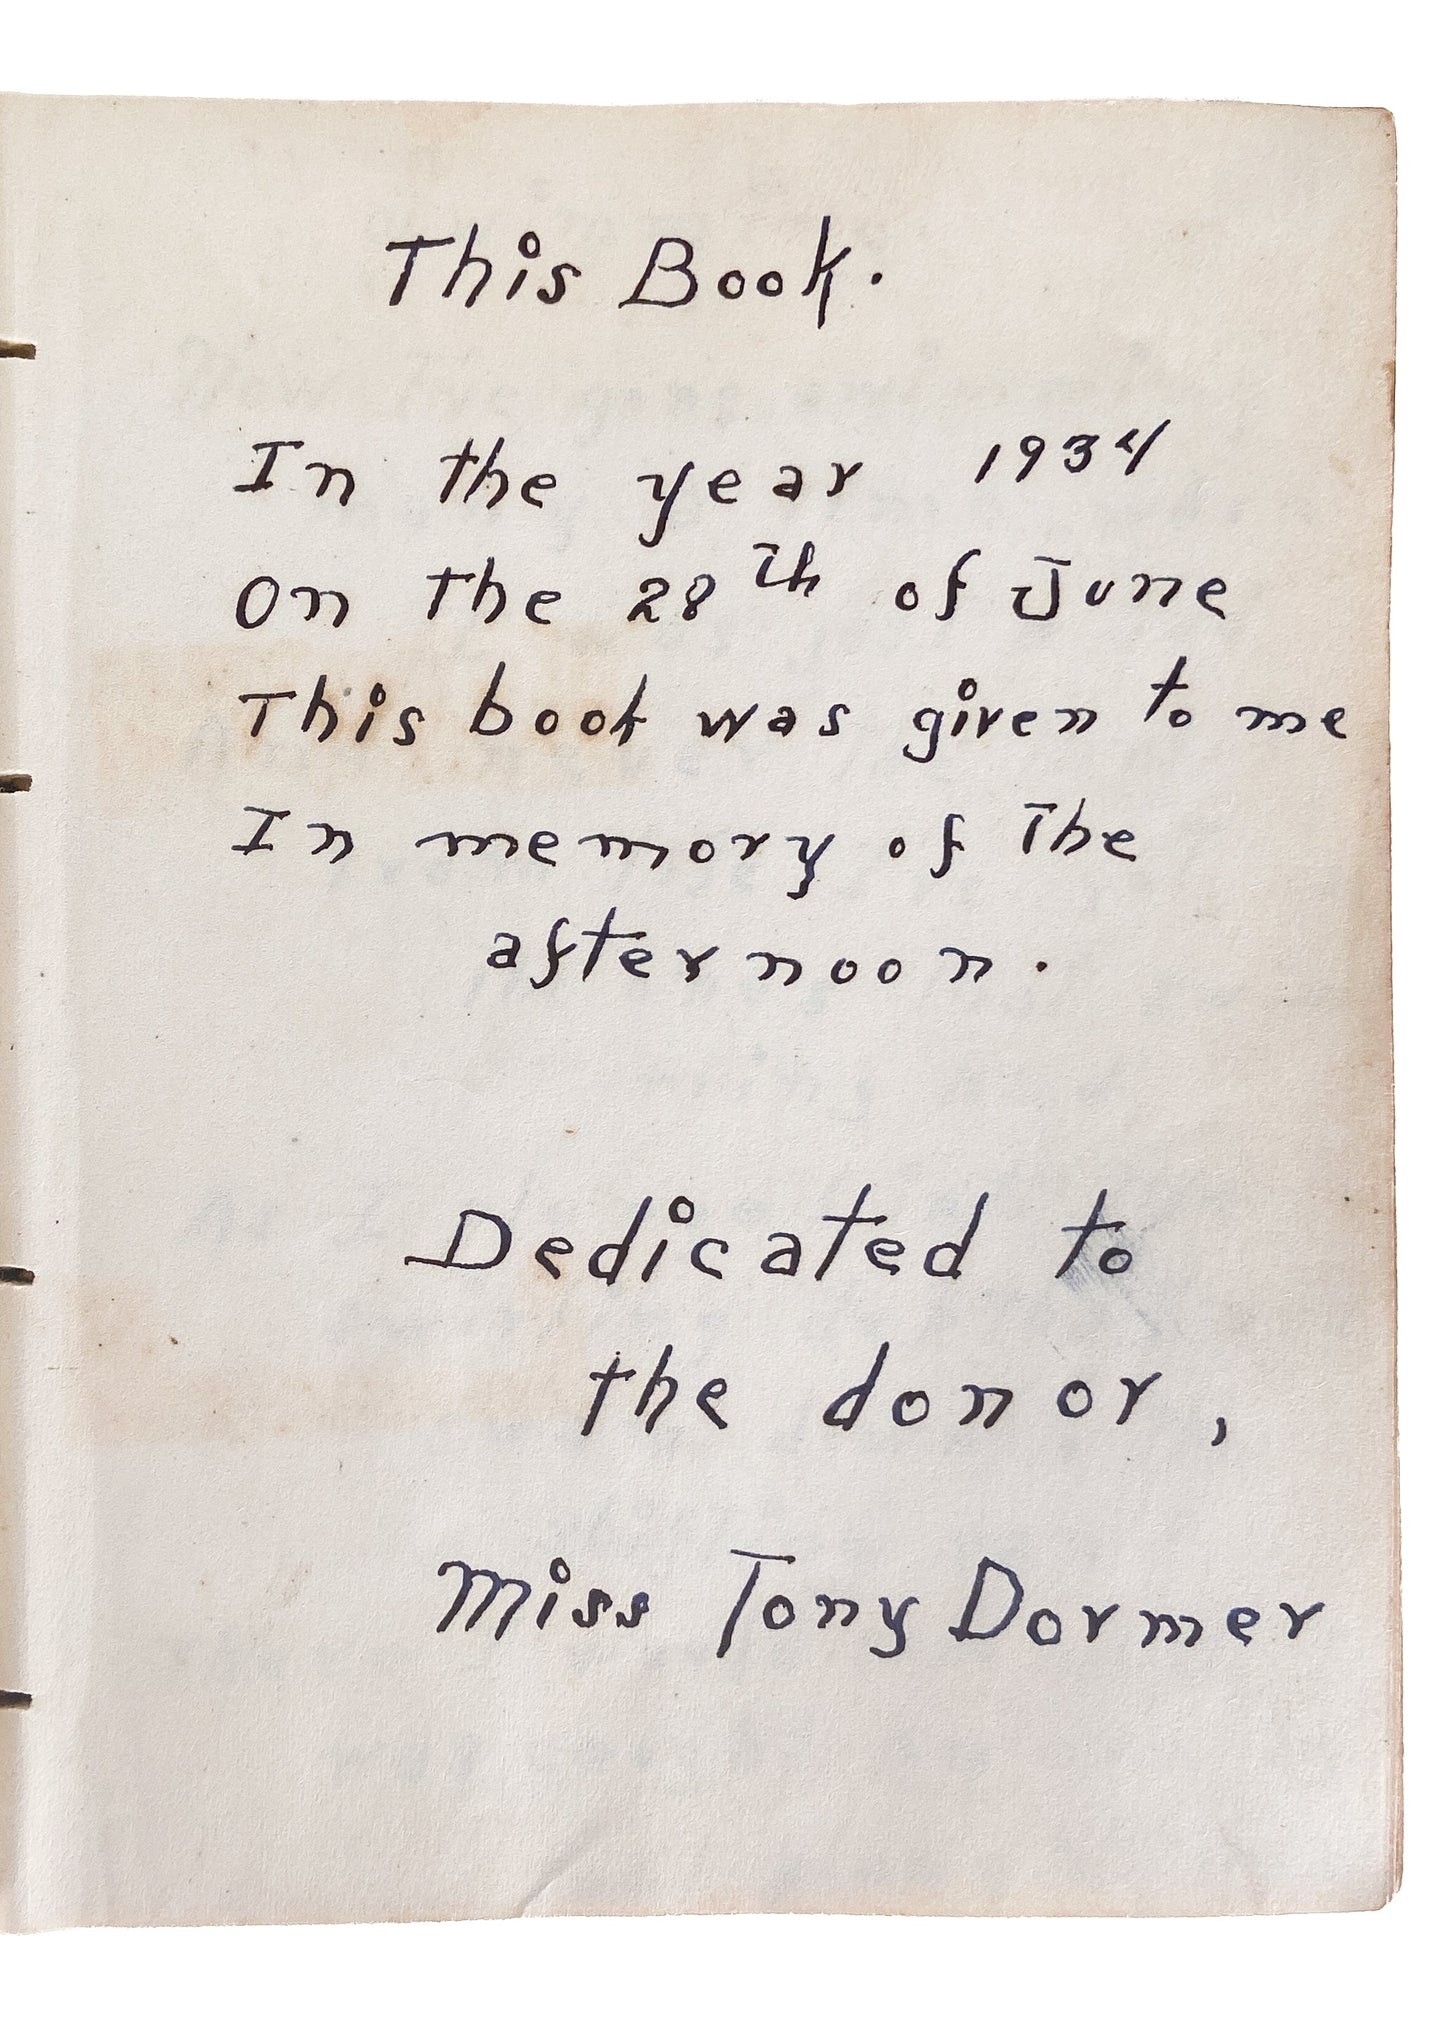 This Book.
In the year 1934
On the 28th of June
This book was given to me
In memory of The
afternoon.
Dedicated to
the donor,
Miss Tony Dormer